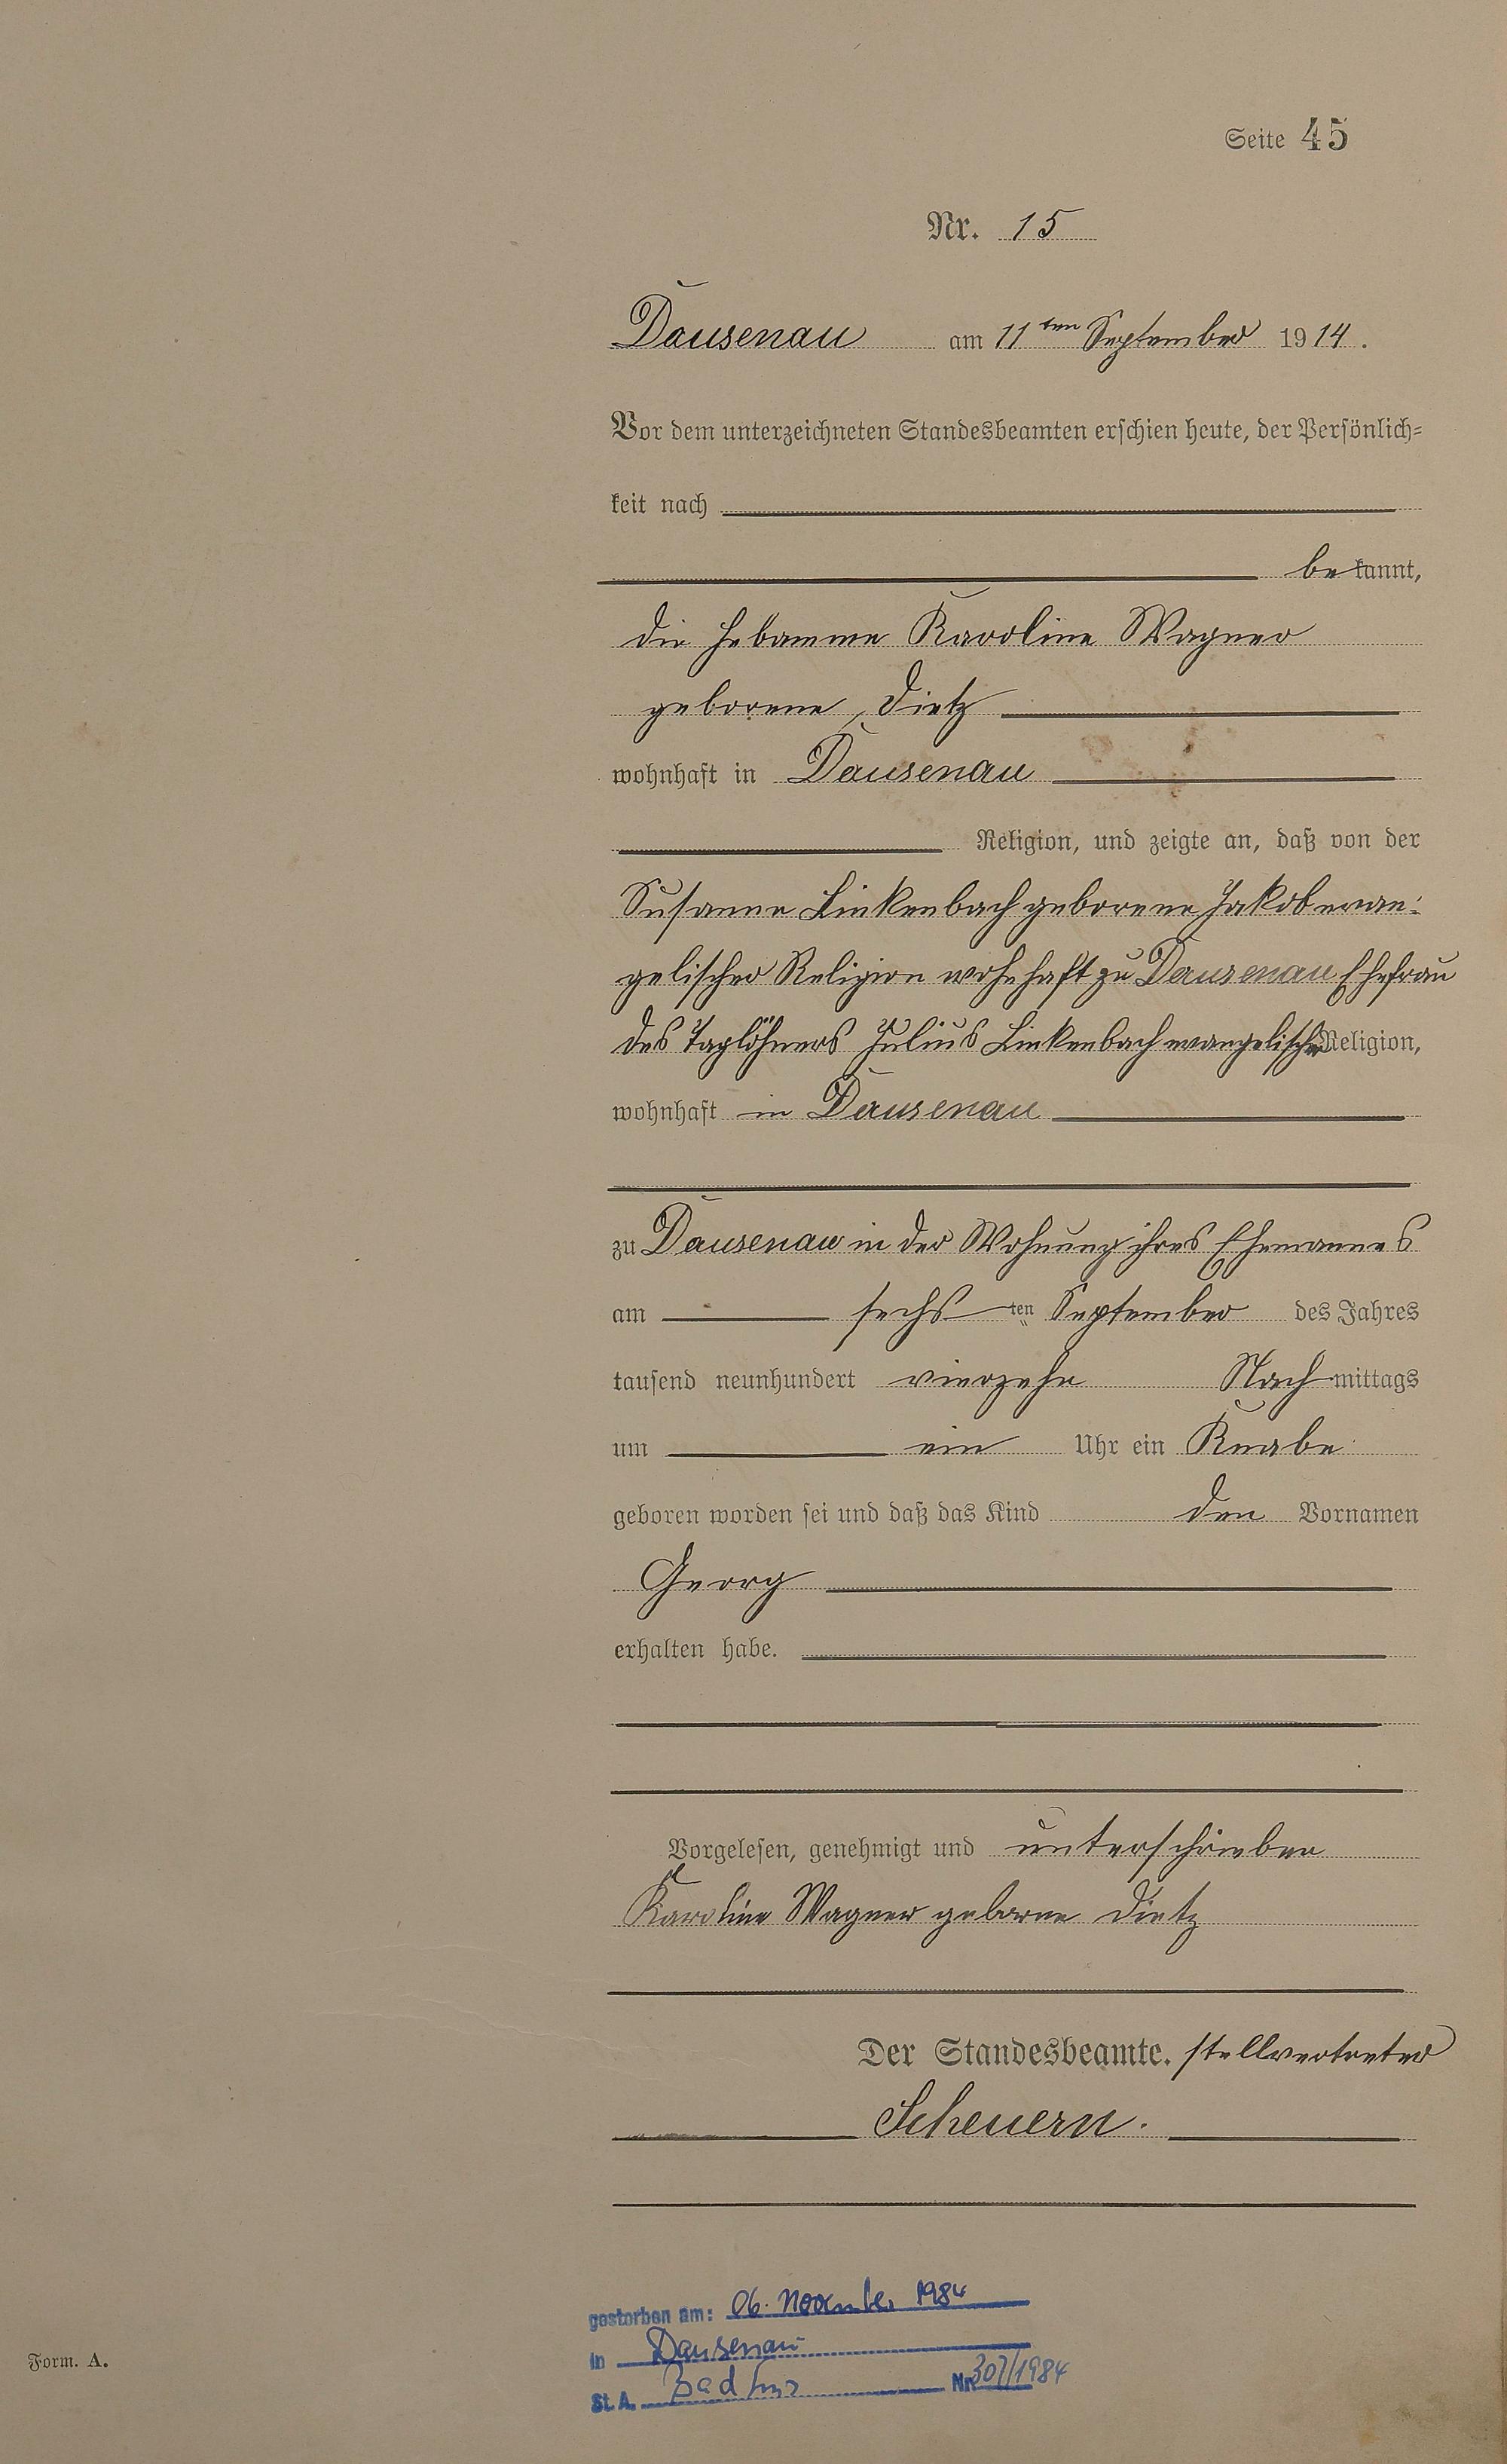 Seite 45
Nr. 15
Dausenau am 11ten September 1914.
Vor dem unterzeichneten Standesbeamten erschien heute, der Persönlich-
keit nach
bekannt,
die Hebamme Karoline Wagner
geborene Dietz
wohnhaft in Dausenau
Religion, und zeigte an, daß von der
Susanna Linkenbach geborene Jakob evan-
gelischer Religion wohnhaft zu Dausenau Ehefrau
des Taglöhners Julius Linkenbach evangelischer Religion,
wohnhaft in Dausenau
zu Dausenau in der Wohnung ihres Ehemannes
am sechsten September des Jahres
tausend neunhundert vierzehn Nachmittags
um ein Uhr ein Knabe
geboren worden sei und daß das Kind den Vornamen
Georg
erhalten habe.
Vorgelesen, genehmigt und unterschrieben
Karoline Wagner geborne Dietz
Der Standesbeamte. stellvertreter
Scheuern.
gestorben am: 06. November 1984
in Dausenau
St. A. Bad Ems Nr. 307/1984
Form. A.